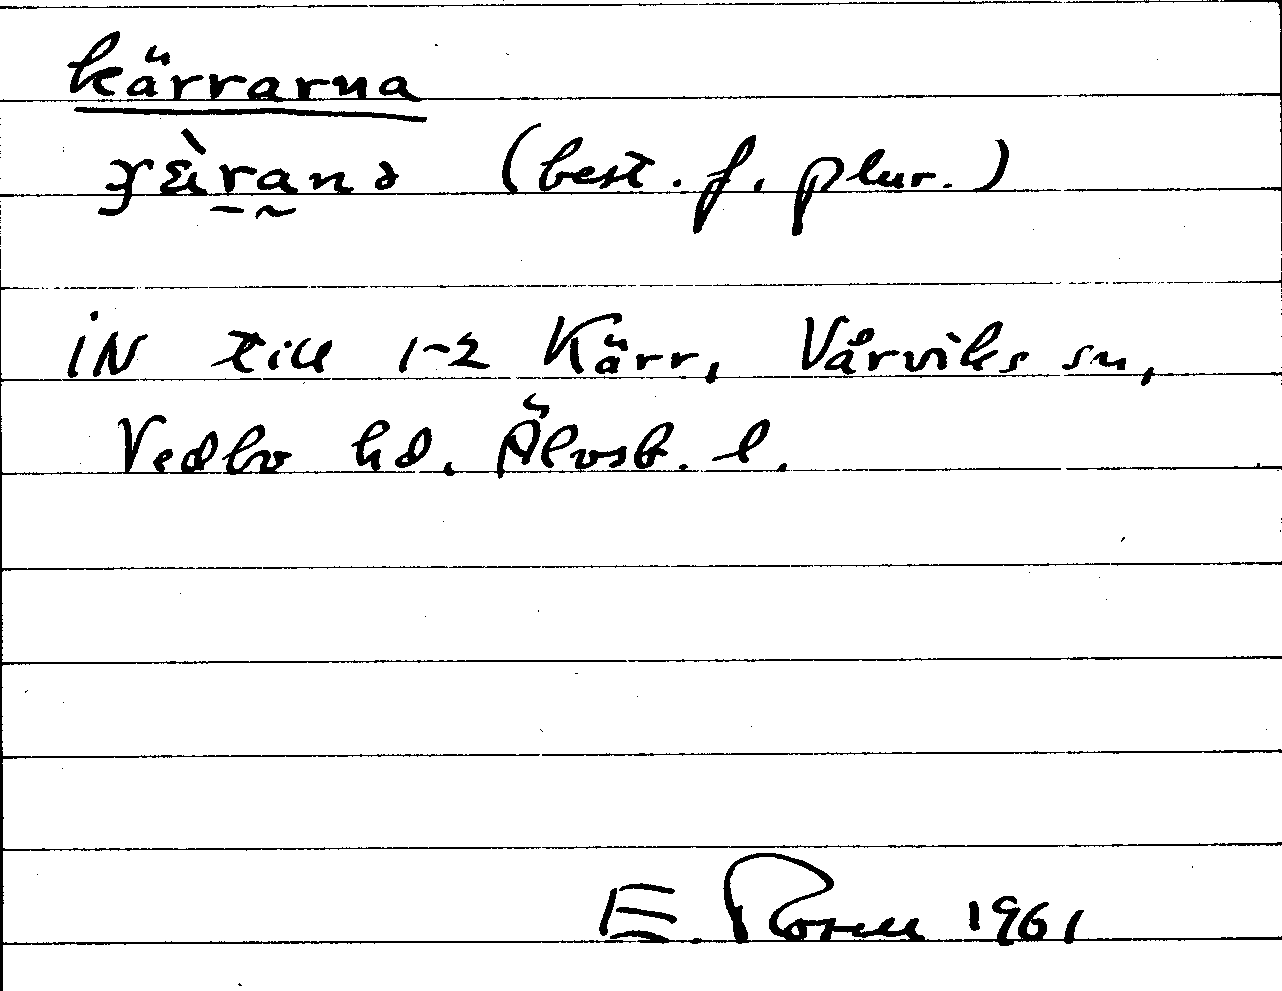 kärrarna
(best. f. plur.)
iN till 1-2 Kärr, Vårviks sn,
Vedbo hd. Älvsb. l.
E. Rosell 1961